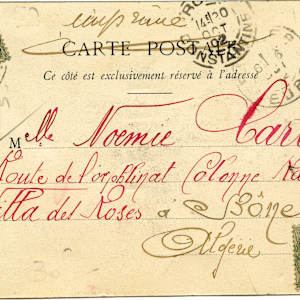 imprimé
CARTE POSTALE
Ce côté est exclusivement réservé à l'adresse
Melle Noemie Car
Route de l'orphelinat Colonne Ra
illa des Roses à Bône
Algérie